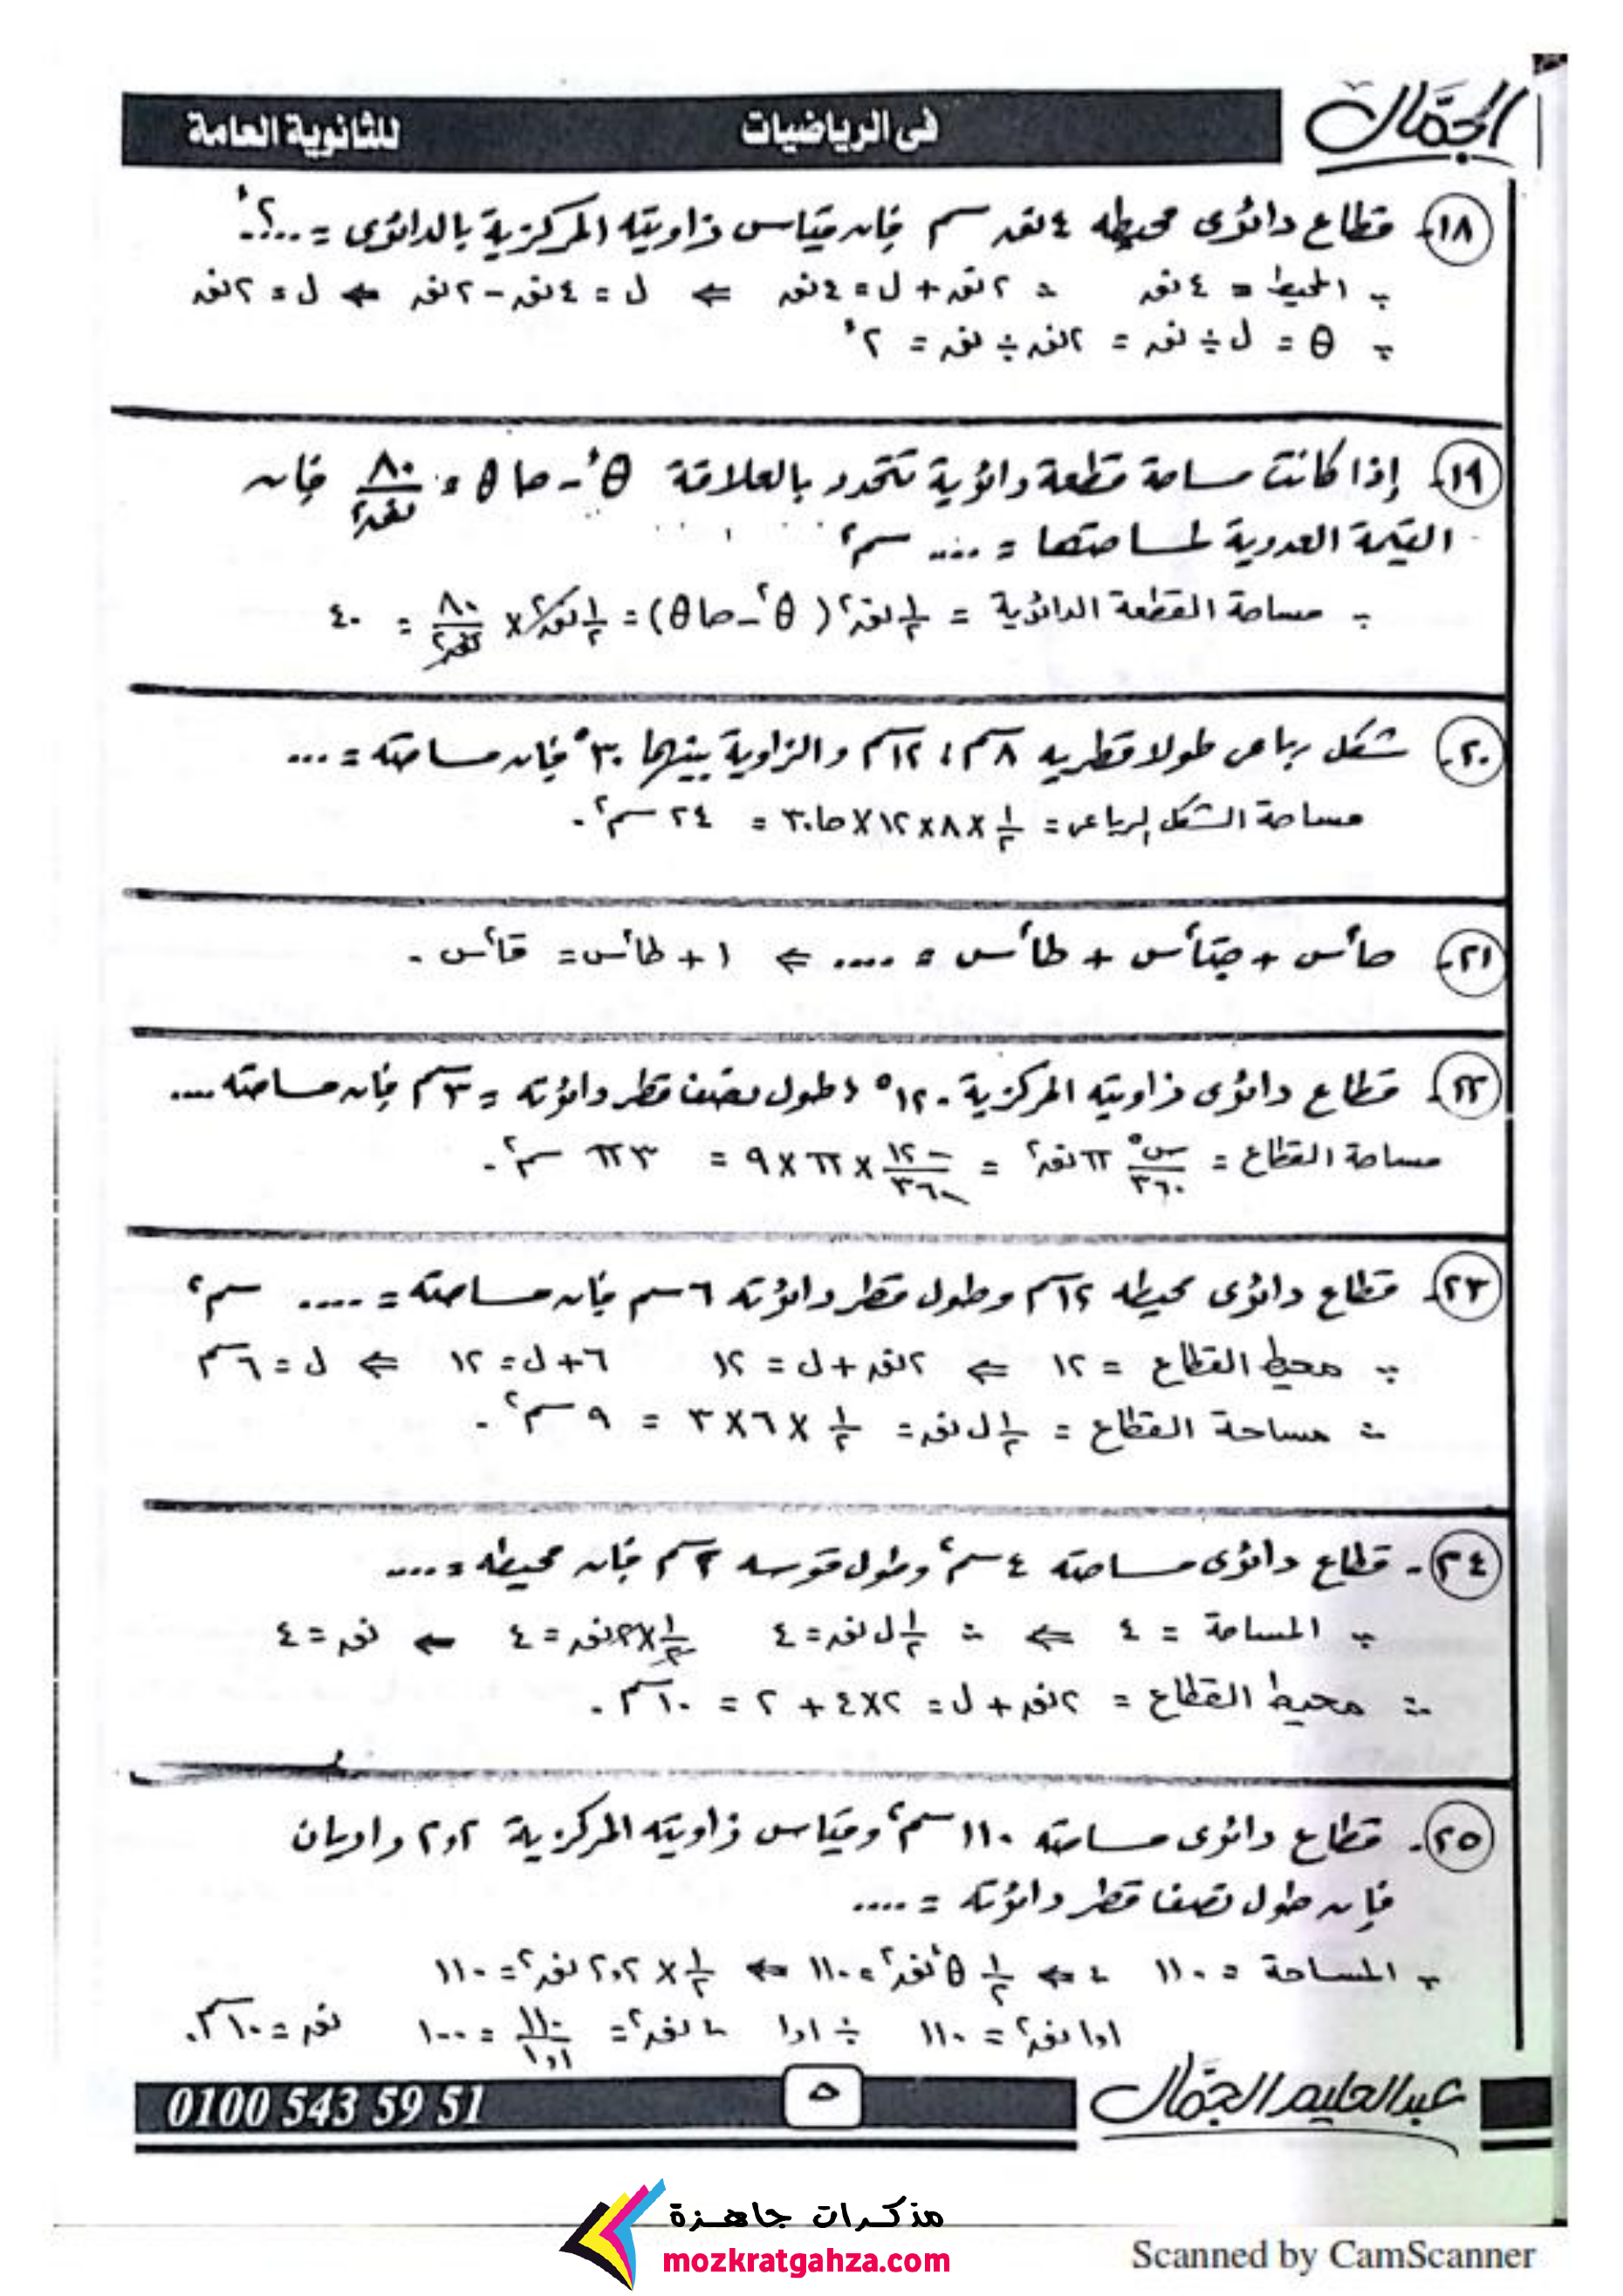 الجمّال
فى الرياضيات
للثانوية العامة
١٨- قطاع دائرى محيطه ٤ نق سم فإن قياس زاويته المركزية بالدائرى = ....؟ ء
∵ المحيط = ٤ نق ∴ ٢ نق + ل = ٤ نق ⇐ ل = ٤ نق - ٢ نق ⇐ ل = ٢ نق
∵ θ = ل ÷ نق = ٢ نق ÷ نق = ٢ ء
١٩- إذا كانت مساحة قطعة دائرية تتحدد بالعلاقة θء - حا θ = ٨٠/نق² فإن
القيمة العددية لمساحتها = .... سم²
∵ مساحة القطعة الدائرية = ١/٢ نق² (θء - حا θ) = ١/٢ نق² × ٨٠/نق² = ٤٠
٢٠- شكل رباعى طولا قطريه ٨ سم ، ١٢ سم والزاوية بينهما ٣٠° فإن مساحته = ...
مساحة الشكل الرباعى = ١/٢ × ٨ × ١٢ × حا ٣٠ = ٢٤ سم² .
٢١- حا²س + حتا²س + طا²س = .... ⇐ ١ + طا²س = قا²س .
٢٢- قطاع دائرى زاويته المركزية ١٢٠° ، طول نصف قطر دائرته = ٣ سم فإن مساحته ....
مساحة القطاع = س°/٣٦٠ π نق² = ١٢٠/٣٦٠ × π × ٩ = ٣ π سم² .
٢٣- قطاع دائرى محيطه ١٢ سم وطول قطر دائرته ٦ سم فإن مساحته = .... سم²
∵ محيط القطاع = ١٢ ⇐ ٢ نق + ل = ١٢ ٦ + ل = ١٢ ⇐ ل = ٦ سم
∴ مساحة القطاع = ١/٢ ل نق = ١/٢ × ٦ × ٣ = ٩ سم² .
٢٤- قطاع دائرى مساحته ٤ سم² وطول قوسه ٢ سم فإن محيطه = ....
∵ المساحة = ٤ ⇐ ∴ ١/٢ ل نق = ٤ ١/٢ × ٢ نق = ٤ ⇐ نق = ٤
∴ محيط القطاع = ٢ نق + ل = ٢ × ٤ + ٢ = ١٠ سم .
٢٥- قطاع دائرى مساحته ١١٠ سم² وقياس زاويته المركزية ٢,٢ راديان
فإن طول نصف قطر دائرته = ....
∵ المساحة = ١١٠ ∴ ⇐ ١/٢ θء نق² = ١١٠ ⇐ ١/٢ × ٢,٢ نق² = ١١٠
١,١ نق² = ١١٠ ÷ ١,١ ∴ نق² = ١١٠/١,١ = ١٠٠ نق = ١٠ سم.
عبد الحليم الجمّال
٥
0100 543 59 51
مذكرات جاهزة
mozkratgahza.com
Scanned by CamScanner